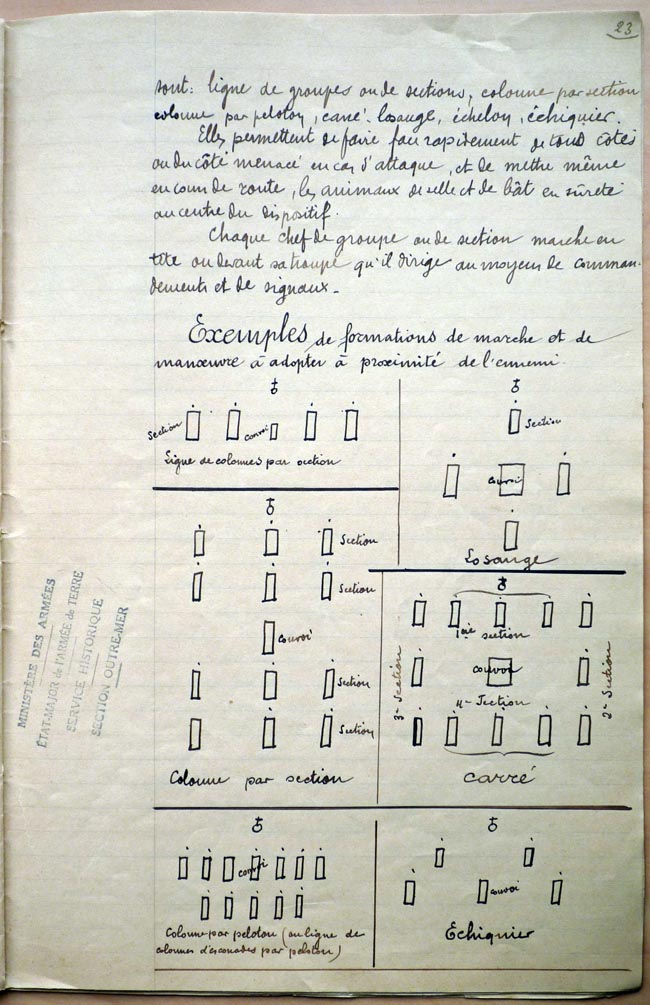 23
sont: ligne de groupes ou de sections, colonne par section
colonne par peloton, carré. losange, échelon, échiquier.
Elles permettent de faire face rapidement de tous côtés
ou du côté menacé en cas d'attaque, et de mettre même
en cours de route, les animaux de selle et de bât en sûreté
au centre du dispositif.
Chaque chef de groupe ou de section marche en
tête ou devant sa troupe qu'il dirige au moyen de comman-
dements et de signaux._
Exemples de formations de marche et de
manœuvre à adopter à proximité de l'ennemi.
Section
convoi
Ligne de colonnes par section
Section
convoi
Losange
Section
Section
convoi
Section
Section
Colonne par section
1ère section
3e Section
convoi
2e Section
4e Section
carré
convoi
Colonne par peloton (ou ligne de
colonnes d'escouades par peloton)
convoi
Echiquier
MINISTÈRE DES ARMÉES
ÉTAT-MAJOR de l'ARMÉE de TERRE
SERVICE HISTORIQUE
SECTION OUTRE-MER